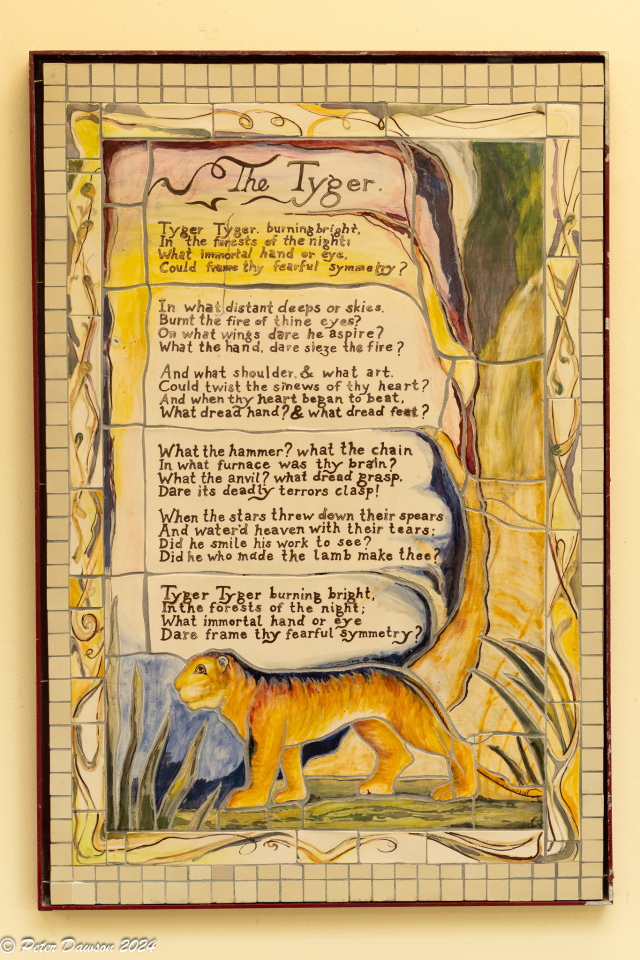 The Tyger.
Tyger Tyger. burning bright,
In the forests of the night:
What immortal hand or eye,
Could frame thy fearful symmetry?
In what distant deeps or skies.
Burnt the fire of thine eyes?
On what wings dare he aspire?
What the hand, dare sieze the fire?
And what shoulder, & what art.
Could twist the sinews of thy heart?
And when thy heart began to beat,
What dread hand? & what dread feet?
What the hammer? what the chain
In what furnace was thy brain?
What the anvil? what dread grasp.
Dare its deadly terrors clasp!
When the stars threw down their spears
And water'd heaven with their tears:
Did he smile his work to see?
Did he who made the lamb make thee?
Tyger Tyger burning bright,
In the forests of the night;
What immortal hand or eye
Dare frame thy fearful symmetry?
© Peter Dawson 2024